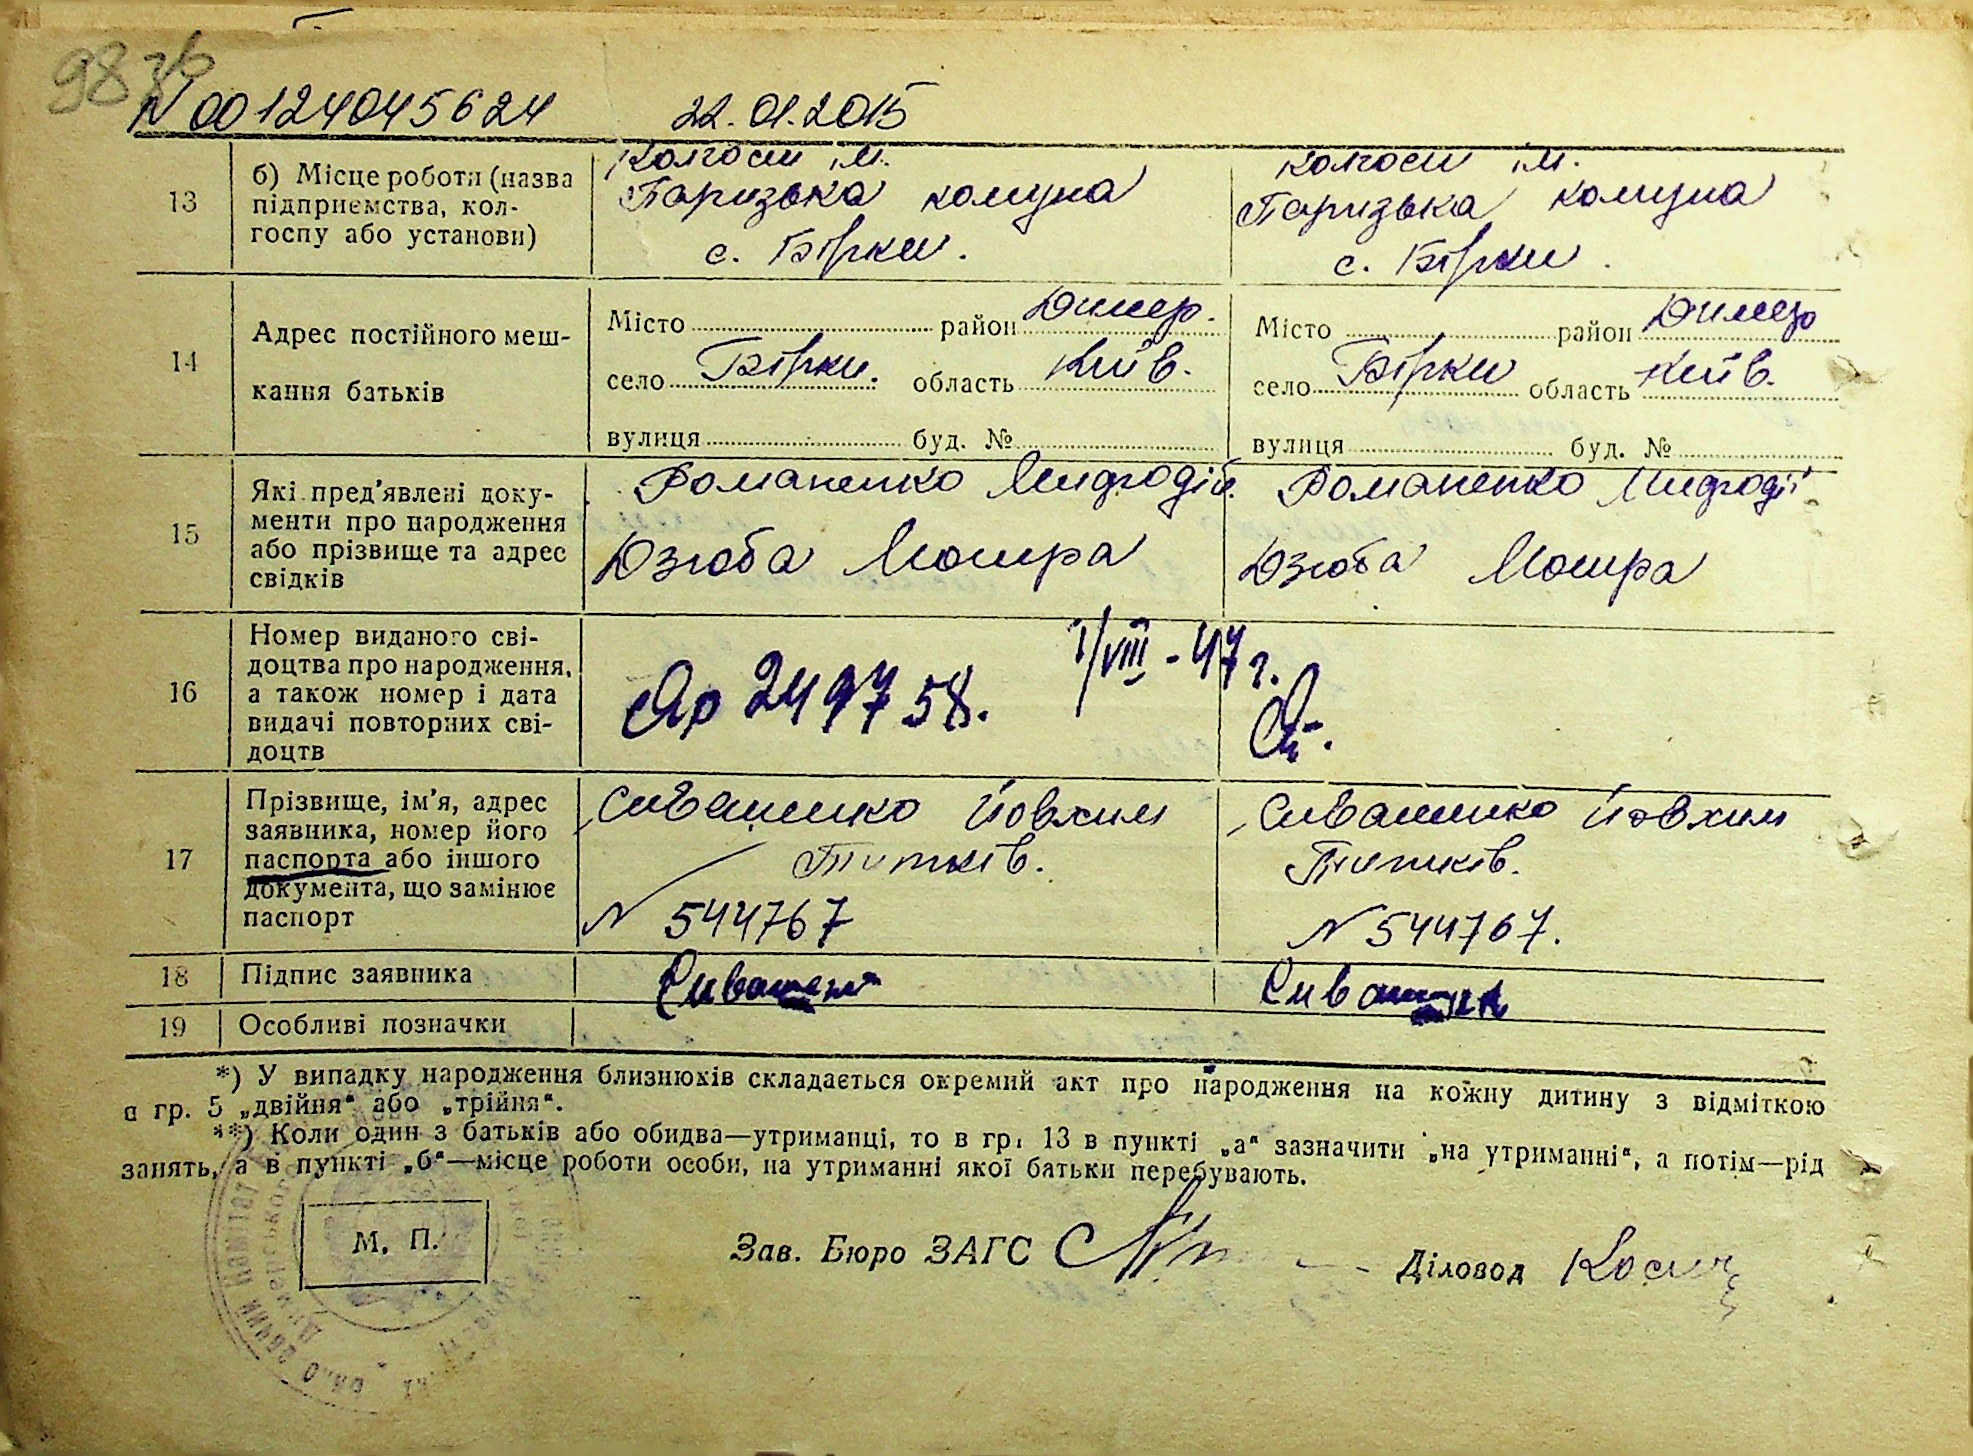 98 зв
N 00124045624 22.01.2015
13 б) Місце роботи (назва підприємства, кол-
госпу або установи)
Колгосп ім. Колгосп ім.
Паризька комуна Паризька комуна
с. Бірки. с. Бірки.
14 Адрес постійного меш-
кання батьків
Місто район Димер. Місто район Димер
село Бірки. область Київ. село Бірки область Київ.
вулиця буд. № вулиця буд. №
15 Які пред'явлені доку-
менти про народження
або прізвище та адрес
свідків
Романенко Мифодій. Романенко Мифодій
Дзюба Мотря Дзюба Мотря
16 Номер виданого сві-
доцтва про народження,
а також номер і дата
видачі повторних сві-
доцтв
1/VIII - 47 г.
249758.
17 Прізвище, ім'я, адрес
заявника, номер його
паспорта або іншого
документа, що замінює
паспорт
Сивашенко Йовхим Сивашенко Йовхим
Титків. Титків.
N 544767 N 544767.
18 Підпис заявника
19 Особливі позначки
*) У випадку народження близнюків складається окремий акт про народження на кожну дитину з відміткою
в гр. 5 „двійня“ або „трійня“.
**) Коли один з батьків або обидва—утриманці, то в гр. 13 в пункті „а“ зазначити „на утриманні“, а потім—рід
занять, а в пункті „б“—місце роботи особи, на утриманні якої батьки перебувають.
М. П. Зав. Бюро ЗАГС Діловод